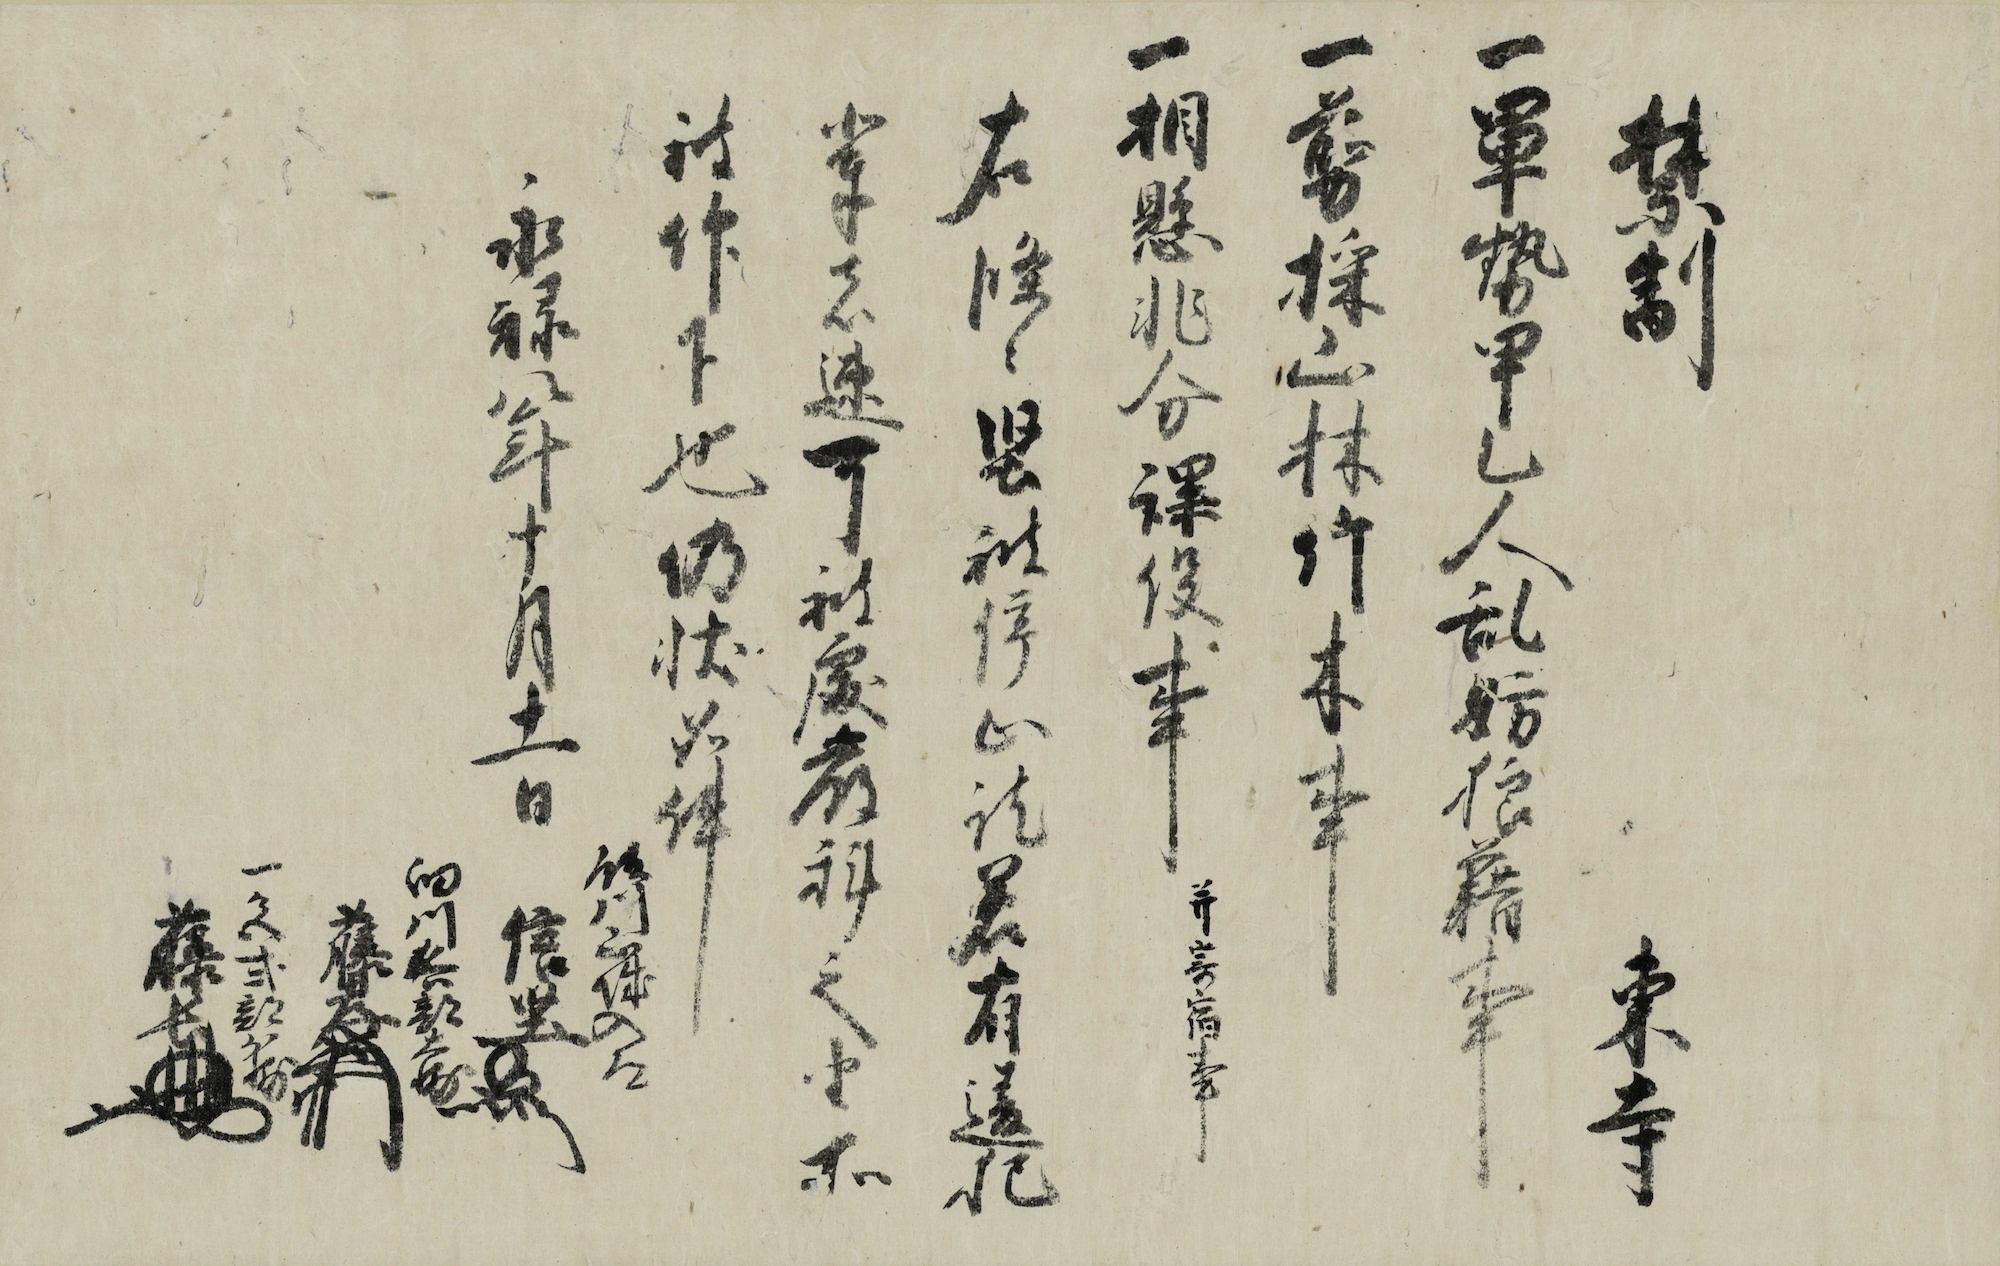 禁制　東寺
一軍勢甲乙人乱妨狼藉事
一剪採山林竹木事
一相懸非分課役事 并寄宿事
右條々堅被停止訖若有違犯
輩者速可被處嚴科之由所
被仰下也仍状如件
永禄八年十月十一日
飯川山城入道
信堅
細川兵部大輔
藤孝
一色式部少輔
藤長